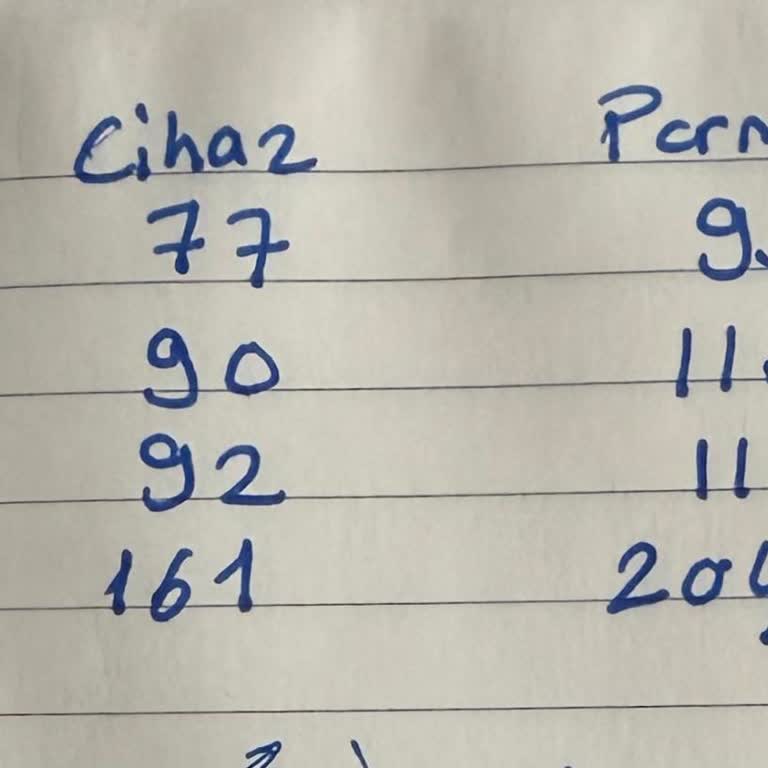 Cihaz Parm
77 9.
90 11.
92 11
161 20